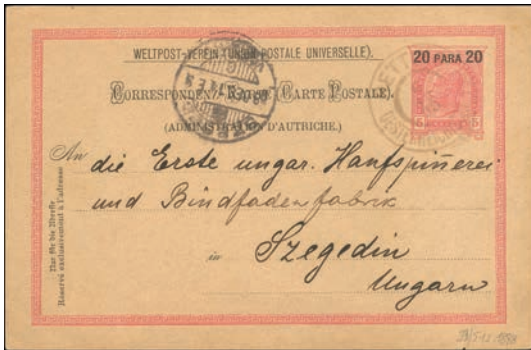 WELTPOST-VEREIN (UNION POSTALE UNIVERSELLE).
20 PARA 20
CORRESPONDENZ-KARTE (CARTE POSTALE).
5 5
(ADMINISTRATION D'AUTRICHE.)
An die Erste ungar. Hanfspinnerei
und Bindfadenfabrik
in Szegedin
Ungarn
Nur für die Adresse
Réservé exclusivement à l'adresse